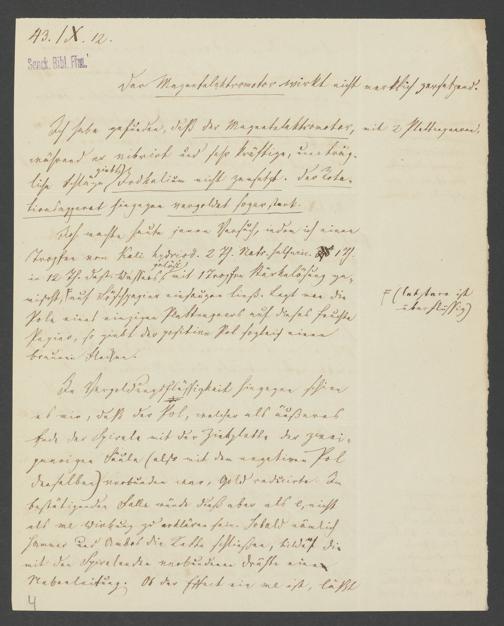 43. /X. 12.
Senck. Bibl. Ffm.
Der Magnetelektromotor wirkt nicht merklich zersetzend.
Ich habe gefunden, daß der Magnetelektromotor, mit 2 Plattenpaaren,
während er vibrirt und sehr kräftige, unerträg-
liche Schläge giebt, Jodkalium nicht zersetzt. Der Rota-
tionsapparat hingegen vergoldet sogar stark.
Ich machte heute jenen Versuch, indem ich einen
Tropfen von Kali hydriod. 2 Th. Natr. sulfuric. 1 Th.
in 12 Th. dest. Wassers gelöst mit 1 Tropfen Stärkelösung ge-
mischt, auf Löschpapier einsaugen ließ. Legt man die
F (letztere ist
überflüssig)
Pole eines einzigen Plattenpaars auf dieses feuchte
Papier, so giebt der positive Pol sogleich einen
braunen Flecken.
In Vergoldungsflüssigkeit hingegen schien
es mir, daß der Pol, welcher als äußeres
Ende der Spirale mit der Zinkplatte der zwei-
paarigen Säule (also mit dem negativen Pol
derselben) verbunden war, Gold reducirte. Im
bestätigenden Falle würde dieß aber als e, nicht
als me Wirkung zu erklären sein. Sobald nämlich
Hammer und Ambos die Kette schließen, bildet die
mit den Spiralenden verbundenen Drähte eine
Nebenleitung. Ob der Effect ein me ist, läßt
4